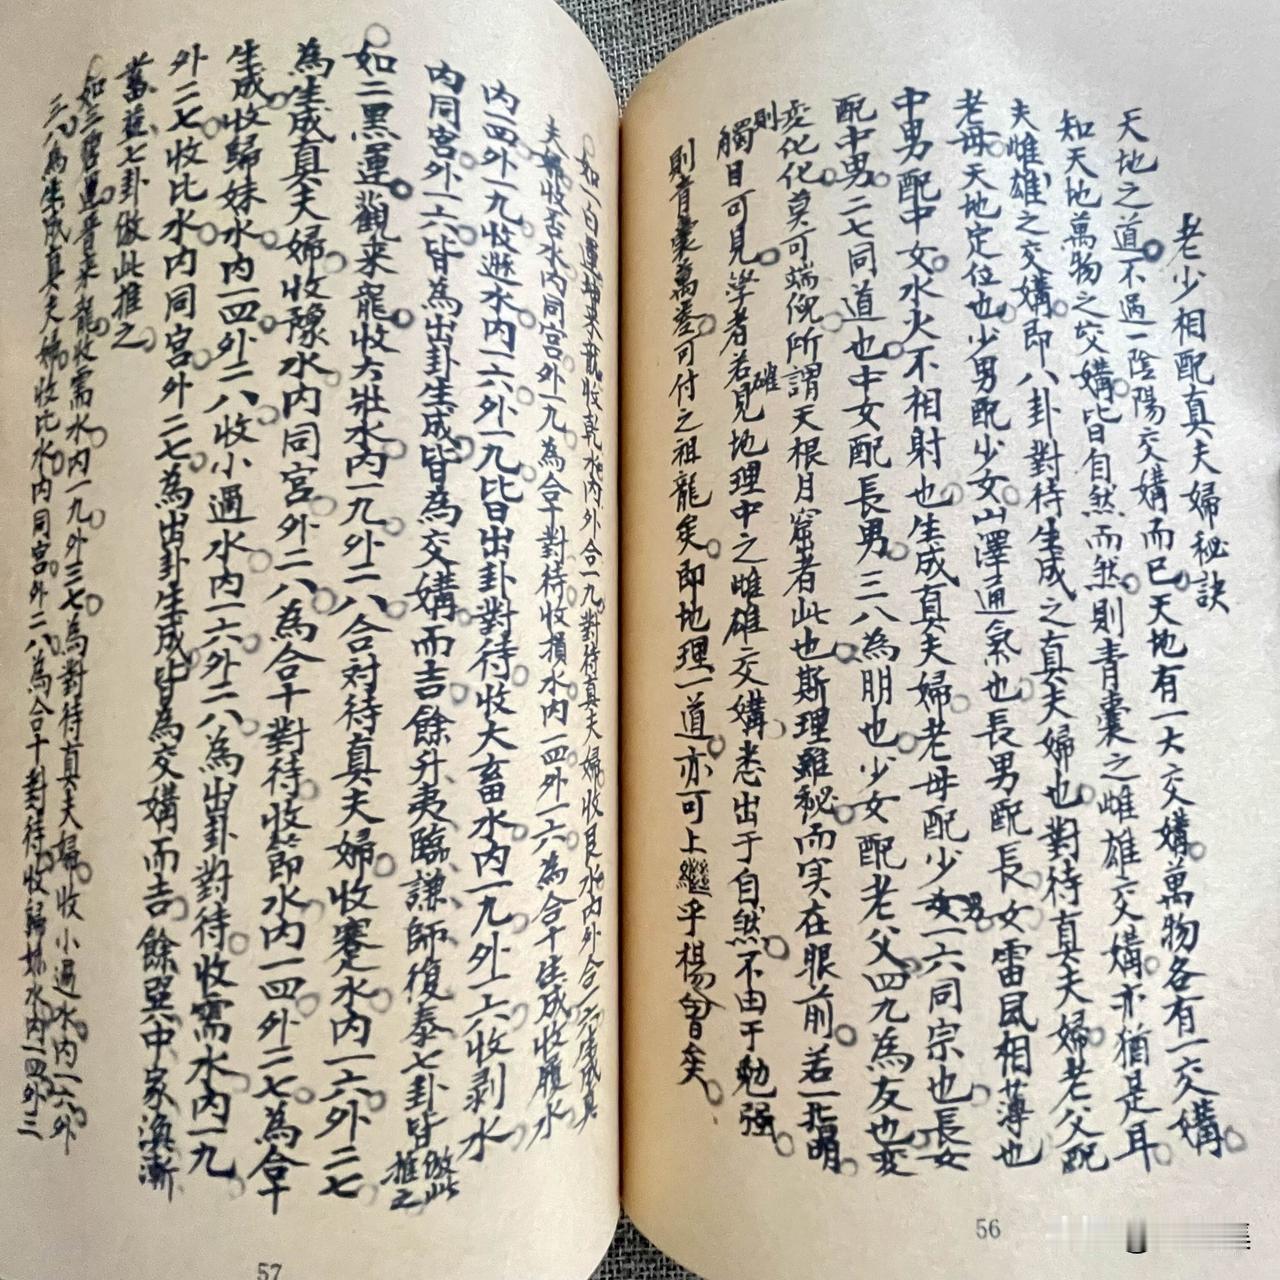 老少相配真夫婦秘訣
天地之道不過一陰陽交媾而已天地有一大交媾萬物各有一交媾
知天地萬物之交媾皆自然而然則青囊之雌雄交媾亦猶是耳
夫雌雄之交媾即八卦對待生成之真夫婦也對待真夫婦老父配
老母天地定位也少男配少女山澤通氣也長男配長女雷風相薄也
中男配中女水火不相射也生成真夫婦老母配少女男一六同宗也長女
配中男二七同道也中女配長男三八為朋也少女配老父四九為友也变
变化化莫可端倪所謂天根月窟者此也斯理雖秘而实在眼前若一指明
則觸目可見学者若確見地理中之雌雄交媾悉出于自然不由于勉强
則青囊萬卷可付之祖龍矣即地理一道亦可上繼乎楊曾矣
56
如一白運坤来龍收乾水內外合一九對待真夫婦收艮水內外合一六生成真
夫婦收否水內同宮外一九為合十對待收損水內一四外一六為合十生成收履水
內一四外一九收遯水內一六外一九皆出卦對待收大畜水內一九外一六收剥水
內同宮外一六皆為出卦生成皆為交媾而吉餘升夷臨謙師復泰七卦皆倣此推之
如二黑運觀来龍收大壯水內一九外二八合対待真夫婦收蹇水內一六外二七
為生成真夫婦收豫水內同宮外二八為合十對待收節水內一四外二七為合十
生成收歸妹水內一四外二八收小過水內一六外二八為出卦對待收需水內一九
外二七收比水內同宮外二七為出卦生成皆為交媾而吉餘巽中家渙漸
蓄益七卦倣此推之
如三碧運晋来龍收需水內一九外三七為對待真夫婦收小過水內一六外
三八為生成真夫婦收比水內同宮外二八為合十對待收歸妹水內一四外三
57